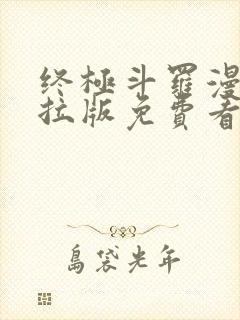 终极斗罗漫
拉版免費看
島袋光年